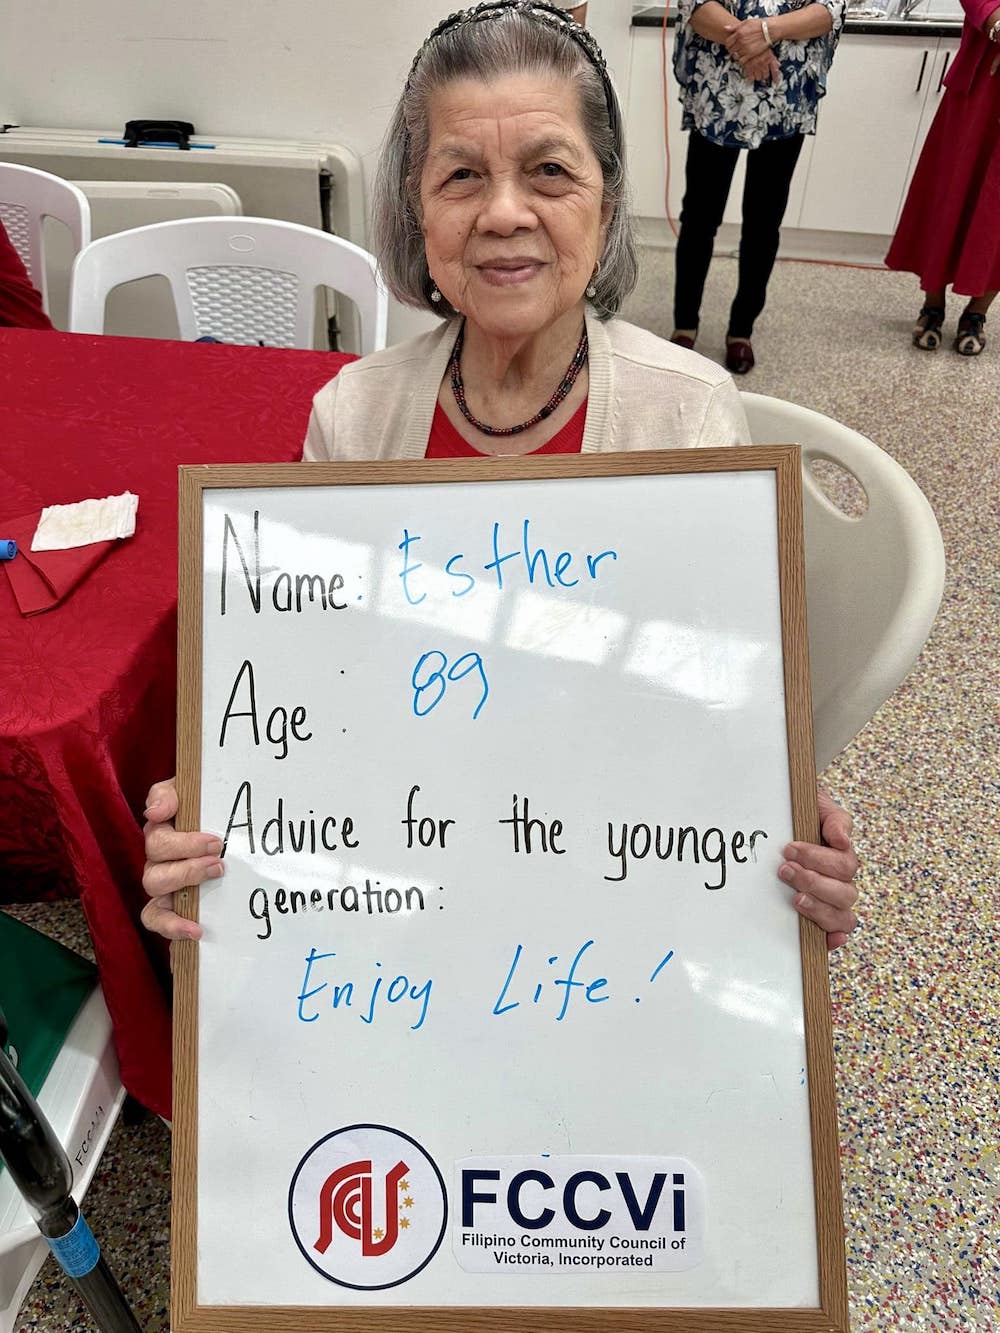 Name: Esther
Age: 89
Advice for the younger
generation:
Enjoy Life!
FCCVi
Filipino Community Council of
Victoria, Incorporated
FCCVi